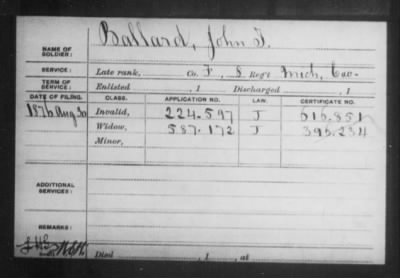 NAME OF SOLDIER: Ballard, John F.
SERVICE: Late rank, Co. F, 8 Reg't Mich. Cav.
TERM OF SERVICE: Enlisted , 1 Discharged , 1
DATE OF FILING. CLASS. APPLICATION NO. LAW. CERTIFICATE NO.
1876 Aug 30 Invalid, 224.597 J 616.851
Widow, 587.172 J 396.234
Minor,
ADDITIONAL SERVICES:
REMARKS:
Died , 1 , at